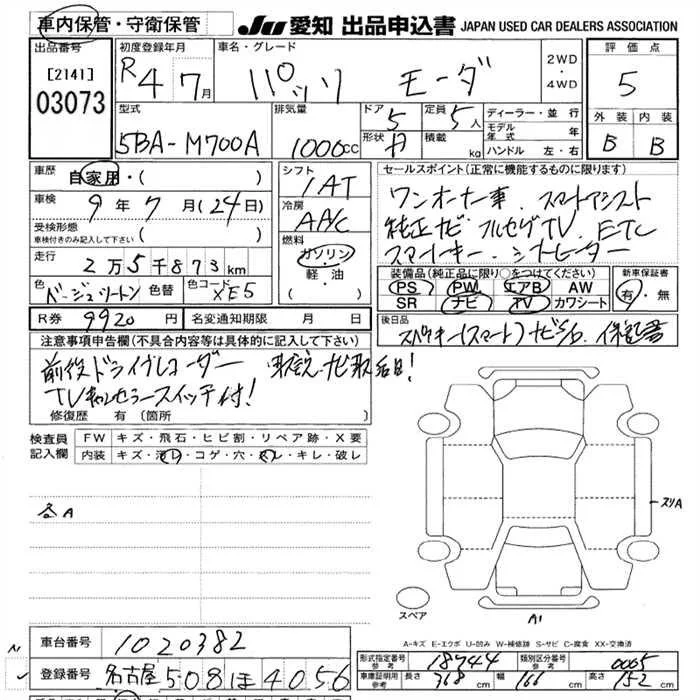 車内保管・守衛保管 JU 愛知 出品申込書 JAPAN USED CAR DEALERS ASSOCIATION
出品番号 初度登録年月 車名・グレード 2WD・4WD 評価点
[2141] R4 7月 パッソ モーダ 5
03073
型式 排気量 ドア 定員 ディーラー・並行 外装 内装
5 5人 モデル年式 年
5BA-M700A 1000cc 形状 積載 kg ハンドル 左・右 B B
車歴 自家用・( ) シフト セールスポイント(正常に機能するものに限ります)
車検 9年7月(24日) 1AT ワンオーナー車、スマートアシスト
受検形態 冷房 純正ナビ フルセグTV、ETC
車検付きのみ記入して下さい AAC スマートキー、シートヒーター
走行 2万5千873km 燃料 装備品(純正品に限り○をつけてください) 新車保証書
ガソリン・軽油 PS PW エアB AW 有・無
色 ベージュツートン 色替 色コード XE5 SR ナビ TV カワシート
R券 9920円 名変通知期限 月 日 後日品
スペアキー(スマート)ナビSD、保証書
注意事項申告欄(不具合内容等は具体的に記入して下さい)
前後ドライブレコーダー 取説、ナビ取後日!
TVキャンセラースイッチ付!
修復歴 有(箇所 )
検査員記入欄 FW キズ・飛石・ヒビ割・リペア跡・X要
内装 キズ・汚レ・コゲ・穴・スレ・キレ・破レ
各A
スリA
スペア
A1
A-キズ E-エクボ U-凹み W-補修跡 S-サビ C-腐食 XX-交換済
車台番号 1020382
A1
登録番号 名古屋 508 ほ 4056
形式指定番号 18744 類別区分番号 0005
車庫証明用参考 長さ 368cm 幅 166cm 高さ 152cm